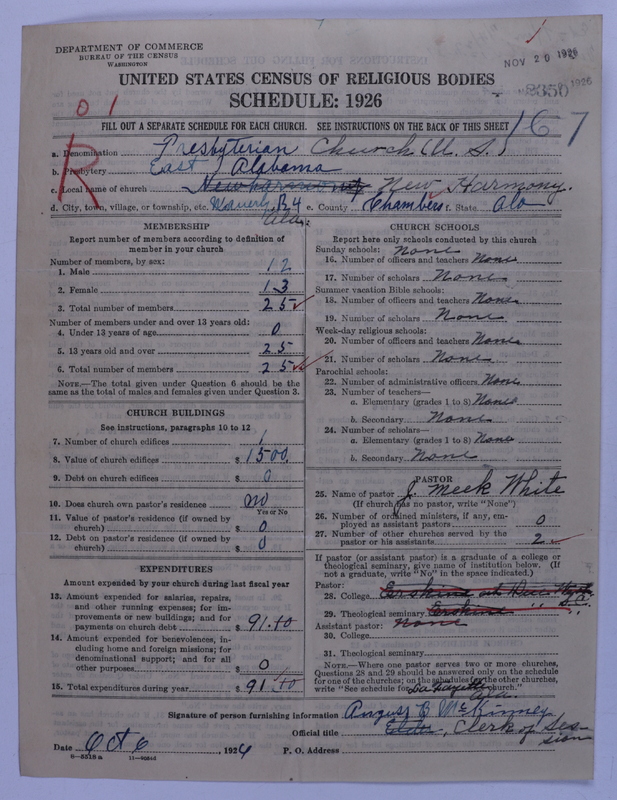 DEPARTMENT OF COMMERCE
BUREAU OF THE CENSUS
WASHINGTON
NOV 20 1926
UNITED STATES CENSUS OF RELIGIOUS BODIES
SCHEDULE: 1926
01
R
FILL OUT A SEPARATE SCHEDULE FOR EACH CHURCH. SEE INSTRUCTIONS ON THE BACK OF THIS SHEET
167
a. Denomination Presbyterian Church (U. S.)
b. Presbytery East Alabama
c. Local name of church New Harmony.
d. City, town, village, or township, etc. Waverly, R4 Ala. e. County Chambers f. State Ala
MEMBERSHIP
Report number of members according to definition of
member in your church
Number of members, by sex:
1. Male 12
2. Female 13
3. Total number of members 25
Number of members under and over 13 years old:
4. Under 13 years of age 0
5. 13 years old and over 25
6. Total number of members 25
NOTE.—The total given under Question 6 should be the
same as the total of males and females given under Question 3.
CHURCH BUILDINGS
See instructions, paragraphs 10 to 12
7. Number of church edifices 1
8. Value of church edifices $ 1500
9. Debt on church edifices $ 0
10. Does church own pastor's residence no
Yes or No
11. Value of pastor's residence (if owned by
church) $ 0
12. Debt on pastor's residence (if owned by
church) $ 0
EXPENDITURES
Amount expended by your church during last fiscal year
13. Amount expended for salaries, repairs,
and other running expenses; for im-
provements or new buildings; and for
payments on church debt $ 91.40
14. Amount expended for benevolences, in-
cluding home and foreign missions; for
denominational support; and for all
other purposes $ 0
15. Total expenditures during year $ 91.40
CHURCH SCHOOLS
Report here only schools conducted by this church
Sunday schools: None
16. Number of officers and teachers None
17. Number of scholars None
Summer vacation Bible schools:
18. Number of officers and teachers None
19. Number of scholars None
Week-day religious schools:
20. Number of officers and teachers None
21. Number of scholars None
Parochial schools:
22. Number of administrative officers None
23. Number of teachers—
a. Elementary (grades 1 to 8) None
b. Secondary None
24. Number of scholars—
a. Elementary (grades 1 to 8) None
b. Secondary None
PASTOR
25. Name of pastor J. Meek White
(If church has no pastor, write "None")
26. Number of ordained ministers, if any, em-
ployed as assistant pastors 0
27. Number of other churches served by the
pastor or his assistants 2
If pastor (or assistant pastor) is a graduate of a college or
theological seminary, give name of institution below. (If
not a graduate, write "No" in the space indicated.)
Pastor:
28. College Erskine
29. Theological seminary Erskine
Assistant pastor: None
30. College
31. Theological seminary
NOTE.—Where one pastor serves two or more churches,
Questions 28 and 29 should be answered only on the schedule
for one of the churches; on the schedules for the other churches,
write "See schedule for La Fayette Ala. church."
Signature of person furnishing information Angus B McKinney
Official title Elder, Clerk of Session
Date Oct 6, 1926 P. O. Address
8-5518 a